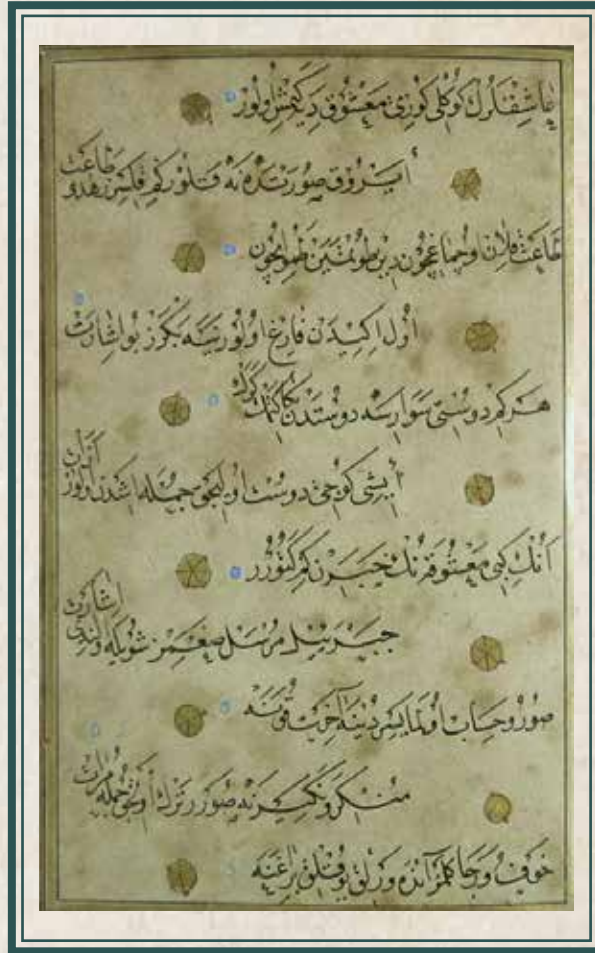 عاشقلرك كوكلی كوزی معشوق دیكمش اولور
أیروق صورتده نه قلور كم قلسر زهدو طاعت
طاعت قلان اوچماغچون دین طوتمین طمو ایچون
اول ایكیدن فارغ اولور نیه بكزر بو اشارت
هركم دوستی سوارسه دوستدن كاكتمك كرك
ایشی كوجی دوست اولیجق جمله اشدن اولور آزاد
انك كبی معشوقه نك خبرن كم كتورر
جبریل مرسل صغمز شویله اولندی اشارت
صور و حساب اولمایسر دنیا آخرت قویه
منكر و نكیر نه صورر ترك اولیجق جمله مرادت
خوف و رجا كلمز آنده وارلق یوقلق براغنه